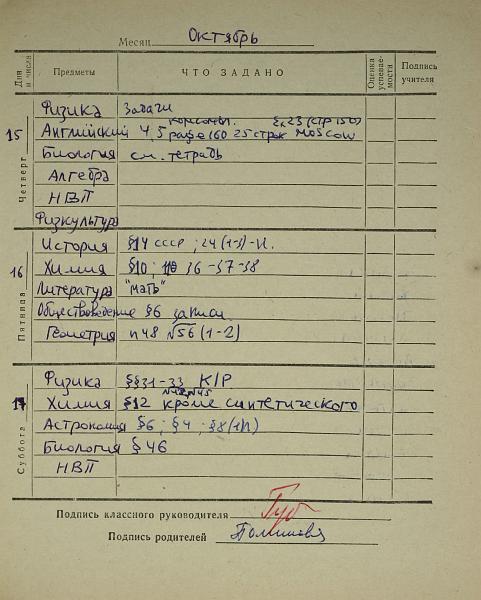 Месяц Октябрь
Дни и числа Предметы ЧТО ЗАДАНО Оценка успеваемости Подпись учителя
15 Четверг
Физика Задачи
Английский 4,5 page 160 25 строк Moscow
Биология см. тетрадь
Алгебра
НВП
Физкультура
16 Пятница
История §14 СССР; 24 (1-3)-И.
Химия §10; 36-37-38
Литература "Мать"
Обществоведение §6 записи
Геометрия п 48 №56 (1-2)
17 Суббота
Физика §§31-33 К/Р
Химия §12 кроме синтетического
Астрономия §6; §4; §8 (1п)
Биология §46
НВП
Подпись классного руководителя
Подпись родителей